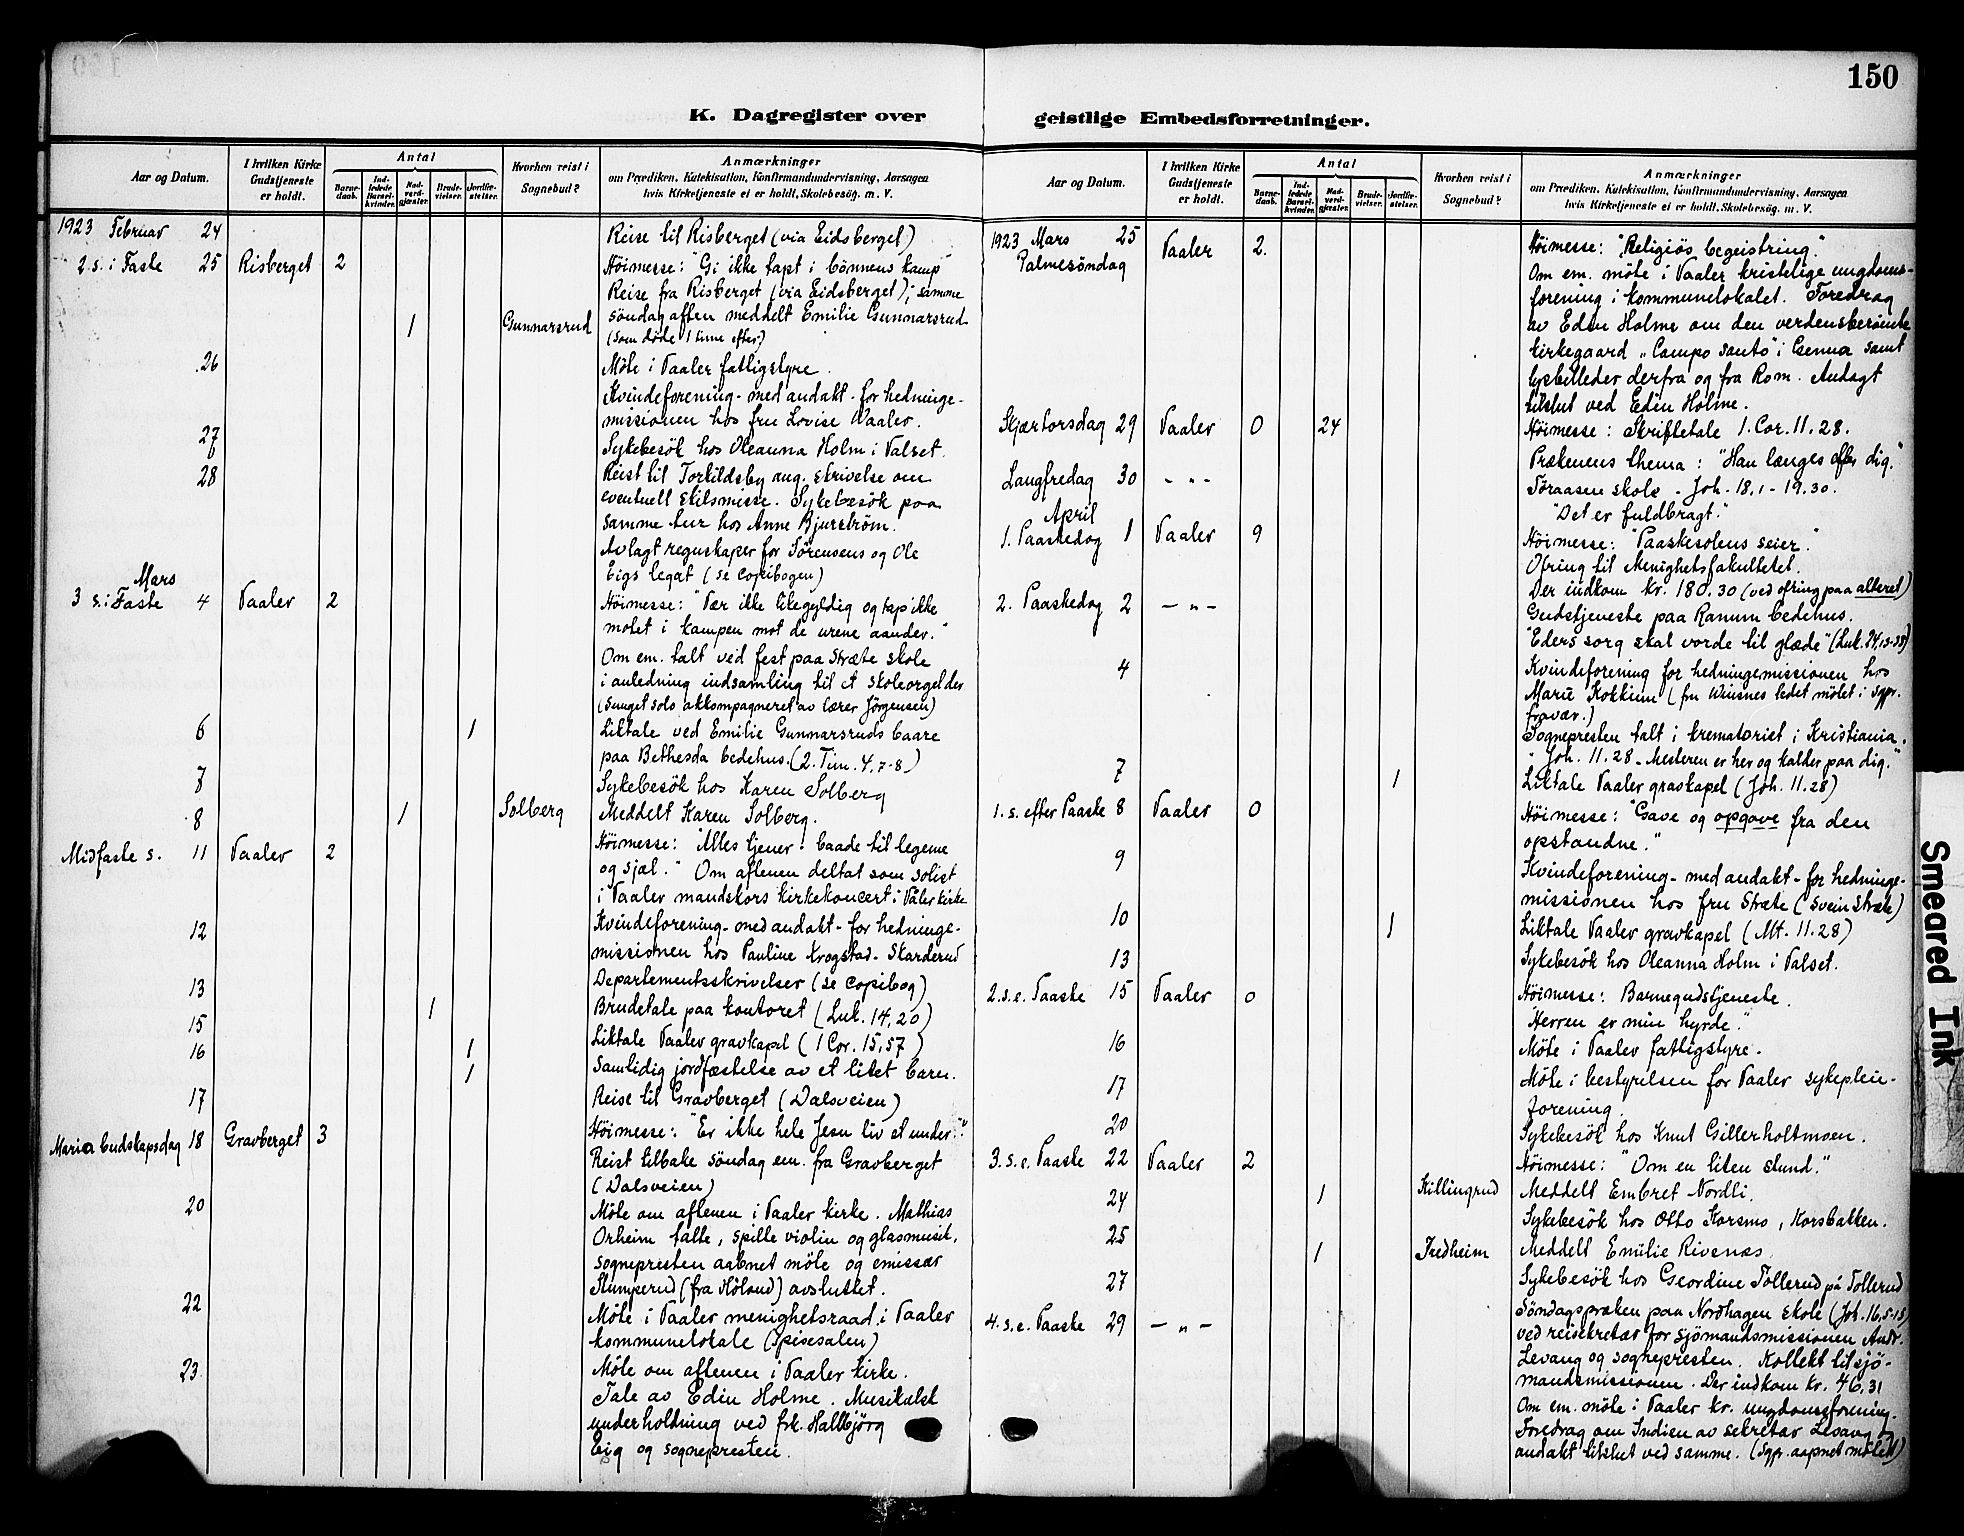 150
K. Dagregister over
geistlige Embedsforretninger.
Aar og Datum.
I hvilken Kirke Gudstjeneste er holdt.
Antal
Barne- daab.
Ind- ledede Barsel- kvinder.
Nad- verd- gjæster.
Brude- vielser.
Jordfæ- stelser.
Hvorhen reist i Sognebud?
Anmærkninger
om Prædiken, Katekisation, Konfirmandundervisning, Aarsagen
hvis Kirketjeneste ei er holdt, Skolebesøg. m. V.
1923 Februar 24 Reise til Risberget (via Eidsberget)
2. s. i Faste 25 Risberget 2 Höimesse: "Gi ikke tapt i bönnens kamp"
Reise fra Risberget (via Eidsberget); samme
1 Gunnarsrud söndag aften meddelt Emilie Gunnarsrud
(som döde 1 time efter)
26 Möte i Vaaler fattigstyre.
Kvindeforening - med andakt - for hedninge-
missionen hos fru Lovise Vaaler.
27 Sykebesök hos Oleanna Holm i Valset.
28 Reist til Torkildsby ang. skrivelse om
eventuell skilsmisse. Sykebesök paa
samme tur hos Anne Bjurström.
Avlagt regnskaper for Sörensens og Ole
Eigs legat (se copibogen)
Mars
3 s. i Faste 4 Vaaler 2 Höimesse: "Vær ikke likegyldig og tap ikke
motet i kampen mot de urene aander."
Om em. talt ved fest paa Stræte skole
i anledning indsamling til et skoleorgel der
(sunget solo akkompagneret av lærer Jörgensen)
6 1 Liktale ved Emilie Gunnarsruds baare
paa Bethesda bedehus. (2. Tim. 4, 7-8)
7 Sykebesök hos Karen Solberg
8 1 Solberg Meddelt Karen Solberg.
Midfaste s. 11 Vaaler 2 Höimesse: "Alles tjener: baade til legeme
og sjæl." Om aftenen deltat som solist
i Vaaler mandskors kirkekoncert i Våler kirke
12 Kvindeforening - med andakt - for hedninge-
missionen hos Pauline Krogstad - Skarderud
13 Departementsskrivelser (se copibog)
15 1 Brudetale paa kontoret (Luk. 14,20)
16 1 Liktale Vaaler gravkapel (1 Cor. 15,57)
1 Samtidig jordfæstelse av et litet barn.
17 Reise til Gravberget (Dalsveien)
Maria budskapsdag 18 Gravberget 3 Höimesse: "Er ikke hele Jesu liv et under."
Reist tilbake söndag em. fra Gravberget
(Dalsveien)
20 Möte om aftenen i Vaaler kirke. Mathias
Orheim talte, spille violin og glasmusik,
sognepresten aabnet möte og emissær
Stumperud (fra Höland) avsluttet.
22 Möte i Vaaler menighetsraad i Vaaler
kommunelokale (spisesalen)
23 Möte om aftenen i Vaaler kirke.
Tale av Edin Holme. Musikalsk
underholdning ved frk. Hallbjörg
Eig og sognepresten.
Aar og Datum.
I hvilken Kirke Gudstjeneste er holdt.
Antal
Barne- daab.
Ind- ledede Barsel- kvinder.
Nad- verd- gjæster.
Brude- vielser.
Jordfæ- stelser.
Hvorhen reist i Sognebud?
Anmærkninger
om Prædiken, Katekisation, Konfirmandundervisning, Aarsagen
hvis Kirketjeneste ei er holdt, Skolebesøg. m. V.
1923 Mars 25 Vaaler 2. Höimesse: "Religiös begeistring."
Palmesöndag Om em. möte i Vaaler kristelige ungdoms-
forening i kommunelokalet. Foredrag
av Edin Holme om den verdensberömte
kirkegaard "Campo santo" i Genua samt
lysbilleder derfra og fra Rom. Andagt
tilslut ved Edin Holme.
Skjærtorsdag 29 Vaaler 0 24 Höimesse: Skriftetale 1. Cor. 11.28.
Prækenens thema: "Han længes efter dig."
Langfredag 30 - " - Töraasen skole - Joh. 18.1 - 19.30.
"Det er fuldbragt."
April
1. Paaskedag 1 Vaaler 9 Höimesse: "Paaskesolens seier."
Ofring til Menighetsfakultetet.
Der indkom kr. 180.30 (ved ofring paa alteret)
2. Paaskedag 2 - " - Gudstjeneste paa Ranum bedehus.
"Eders sorg skal vorde til glæde" (Luk. 24,13-35)
4 Kvindeforening for hedningemissionen hos
Marie Kokkim (fru Winsnes ledet mötet i sgpr.
fravær.)
Sognepresten talt i krematoriet i Kristiania.
"Joh. 11.28 - Mesteren er her og kalder paa dig."
7 1 Liktale Vaaler gravkapel (Joh. 11.28)
1. s. efter Paaske 8 Vaaler 0 Höimesse: "Gave og opgave fra den
opstandne."
9 Kvindeforening - med andakt - for hedninge-
missionen hos fru Stræte (Svein Stræte)
10 1 Liktale Vaaler gravkapel (Mt. 11.28)
13 Sykebesök hos Oleanna Holm i Valset.
2. s. e. Paaske 15 Vaaler 0 Höimesse: Barnegudstjeneste.
"Herren er min hyrde."
16 Möte i Vaaler fattigstyre.
17 Möte i bestyrelsen for Vaaler sykepleie-
forening.
20 Sykebesök hos Knut Gillerholtmoen.
3. s. e. Paaske 22 Vaaler 2 Höimesse: "Om en liten stund."
24 1 Killingrud Meddelt Embret Nordli.
Sykebesök hos Otto Korsmo, Korsbakken.
25 1 Fredheim Meddelt Emilie Rivenes.
27 Sykebesök hos Geordine Tollerud på Tollerud
4. s. e. Paaske 29 - " - Söndagspræken paa Nordhagen skole (Joh. 16,5-15)
ved reisekretær for sjömandsmissionen Andr.
Levang og sognepresten. Kollekt til sjö-
mandsmissionen. Der indkom kr. 46,31
Om em. möte i Vaaler kr. ungdomsforening.
Foredrag om Indien av sekretær Levang og
andakt tilslut ved samme. (Sgpr. aapnet mötet)
Smeared Ink